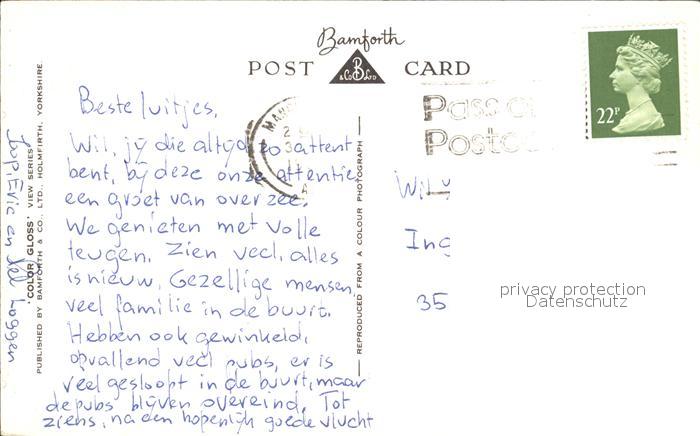 Bamforth
POST CARD
B
& Co LTD
Beste luitjes,
Wil, jij die altijd zo attent
bent, bij deze onze attentie
een groet van over zee.
We genieten met volle
teugen. Zien veel, alles
is nieuw. Gezellige mensen,
veel familie in de buurt.
Hebben ook gewinkeld,
opvallend veel pubs, er is
veel gesloopt in de buurt, maar
de pubs blijven overeind. Tot
ziens, na een hopenlijk goede vlucht
Evie en Loggen
'COLOR GLOSS' VIEW SERIES
PUBLISHED BY BAMFORTH & CO., LTD., HOLMFIRTH, YORKSHIRE.
REPRODUCED FROM A COLOUR PHOTOGRAPH
Pass o
Postco
22P
Wil
Ing
35
privacy protection
Datenschutz